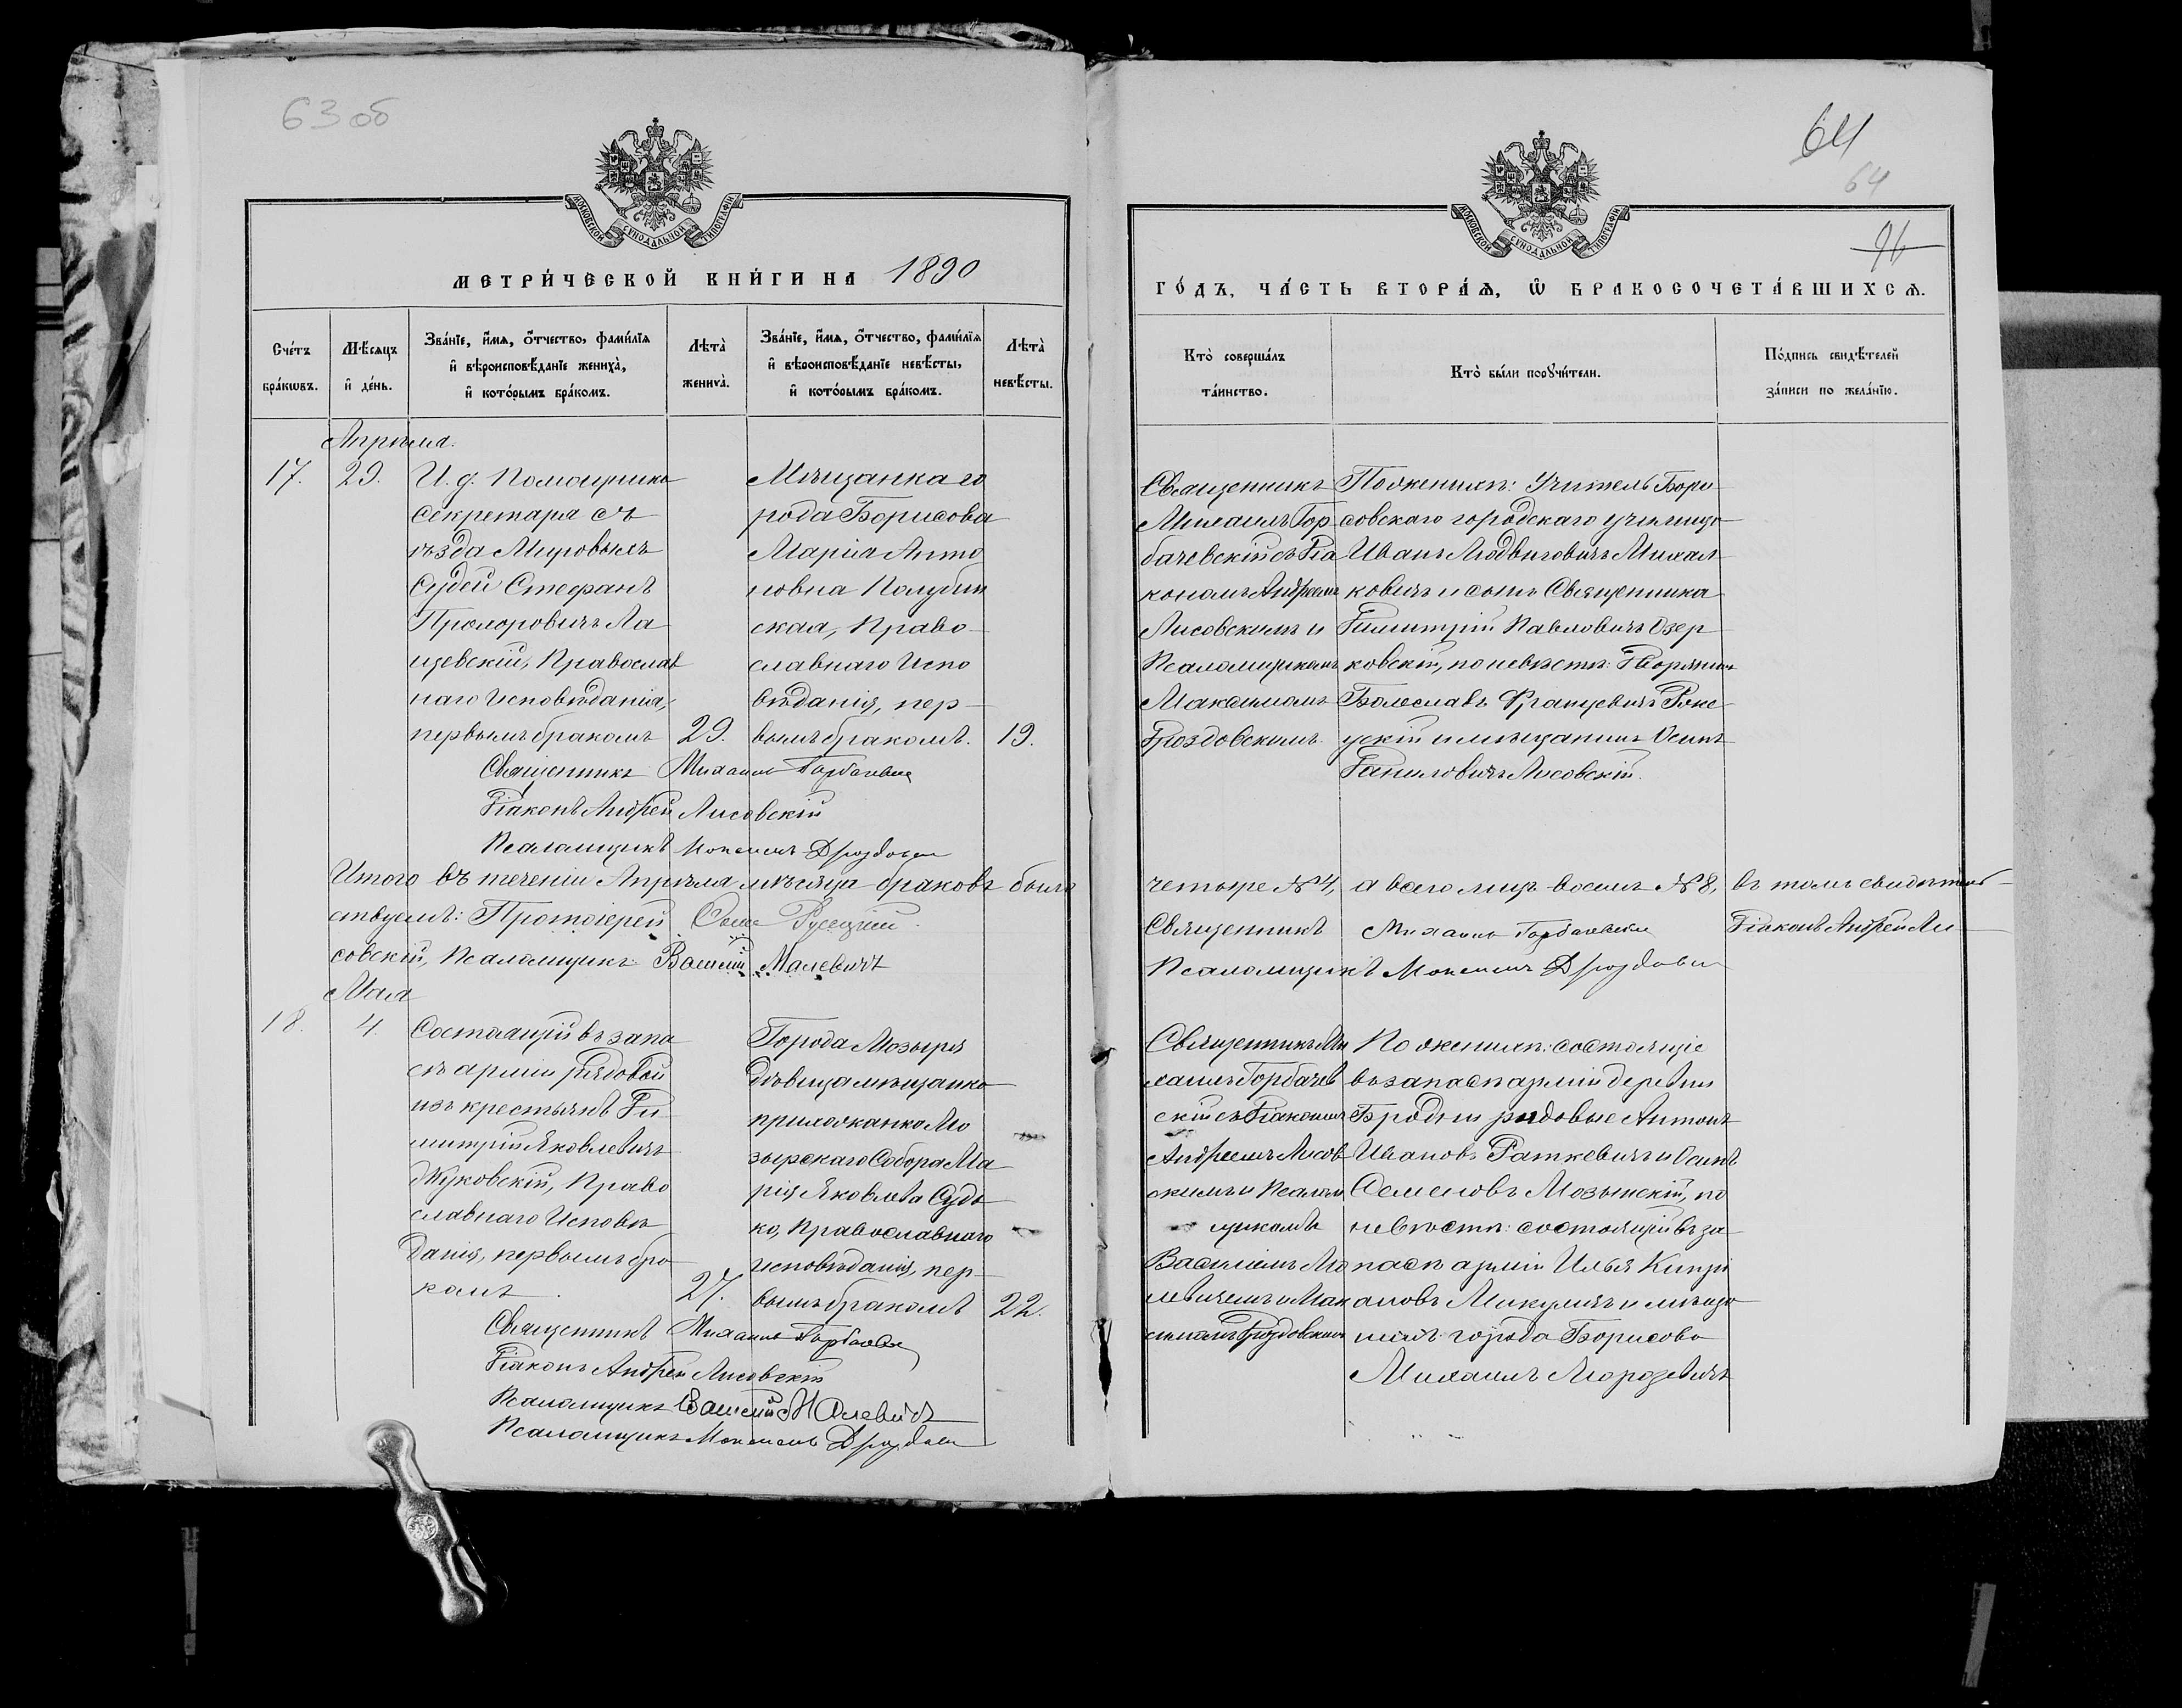 63 об
МОСКОВСКОЙ СУНОДАЛЬНОЙ ТИПОГРАФІИ
МЕТРИ́ЧЕСКОЙ КНИ́ГИ НА 1890
Сче́тъ бра́кωвъ.
Мѣ́сяцъ и҆ де́нь.
Зва́нїе, и҆́мя, ѻ҆́тчество, фами́лїя и҆ вѣроисповѣ́данїе жениха̀, и҆ кото́рымъ бра́комъ.
Лѣта̀ жениха̀.
Зва́нїе, и҆́мя, ѻ҆́тчество, фами́лїя и҆ вѣроисповѣ́данїе невѣ́сты, и҆ кото́рымъ бра́комъ.
Лѣта̀ невѣ́сты.
Апрѣля.
17.
29.
И. д. Помощника
Секретаря съ
ѣзда Мировыхъ
Судей Стефанъ
Прохоровичъ Ла
щевскій, Православ
наго исповѣданія,
первымъ бракомъ
29.
Мѣщанка го
рода Борисова
Марія Анто
новна Полубин
ская, Право-
славнаго Испо
вѣданія, пер-
вымъ бракомъ.
19.
Священникъ Михаилъ Горбачевскій
Діаконъ Андрей Лисовскій
Псаломщикъ Максимъ Дроздовскій
Итого въ теченіи Апрѣля мѣсяца браковъ было
ствуемъ: Протоіерей
совскій, Псаломщикъ Василій Малевичъ
Мая
18.
4.
Состоящій въ запа
сѣ арміи рядовой
изъ крестьянъ Ди
митрій Яковлевичъ
Жуковскій, Право
славнаго Исповѣ
данія, первымъ бра
комъ.
27.
Города Мозыря
дѣвица мѣщанка
прихожанка Мо
зырскаго Собора Ма
рія Яковлева Судь
ко, Православнаго
исповѣданія, пер-
вымъ бракомъ
22.
Священникъ Михаилъ Горбачевскій
Діаконъ Андрей Лисовскій
Псаломщикъ Василій Малевичъ
Псаломщикъ Максимъ Дроздовскій
64
64
96
МОСКОВСКОЙ СУНОДАЛЬНОЙ ТИПОГРАФІИ
ГО́ДЪ, ЧА́СТЬ ВТОРА́Я, Ѽ БРАКОСОЧЕТА́ВШИХСЯ.
Кто̀ соверша́лъ та́инство.
Кто̀ бы́ли порꙋчи́тели.
По́дпись свидѣ́телей за́писи по жела́нїю.
Священникъ
Михаилъ Гор-
бачевскій съ Діа
кономъ Андреемъ
Лисовскимъ и
Псаломщикомъ
Максимомъ
Дроздовскимъ.
По женихѣ: Учитель Бори
совскаго городскаго училища
Иванъ Людвиговичъ Михал
ковичъ и сынъ Священника
Димитрій Павловичъ Озер
ковскій, по невѣстѣ: Дворянинъ
Болеславъ Францевичъ
и мѣщанинъ Осипъ
Даниловичъ Лисовскій.
четыре № 4, а всего лицъ восемь № 8, въ томъ свидѣтель-
Священникъ Михаилъ Горбачевскій Діаконъ Андрей Ли-
Псаломщикъ Максимъ Дроздовскій
Священникъ Ми
хаилъ Горбачев
скій съ Діакономъ
Андреемъ Лисов
скимъ и Псалом
щикомъ
Василіемъ Ма
левичемъ и Мак
симомъ Дроздовскимъ
По женихѣ: состоящіе
въ запасѣ арміи деревни
Бродни рядовые Антонъ
Ивановъ Раткевичъ и Осипъ
Семеновъ Мозынскій, по
невѣстѣ: состоящій въ за-
пасѣ арміи Илья Кипрі
ановъ Микуличъ и мѣща
нинъ города Борисова
Михаилъ Морозевичъ